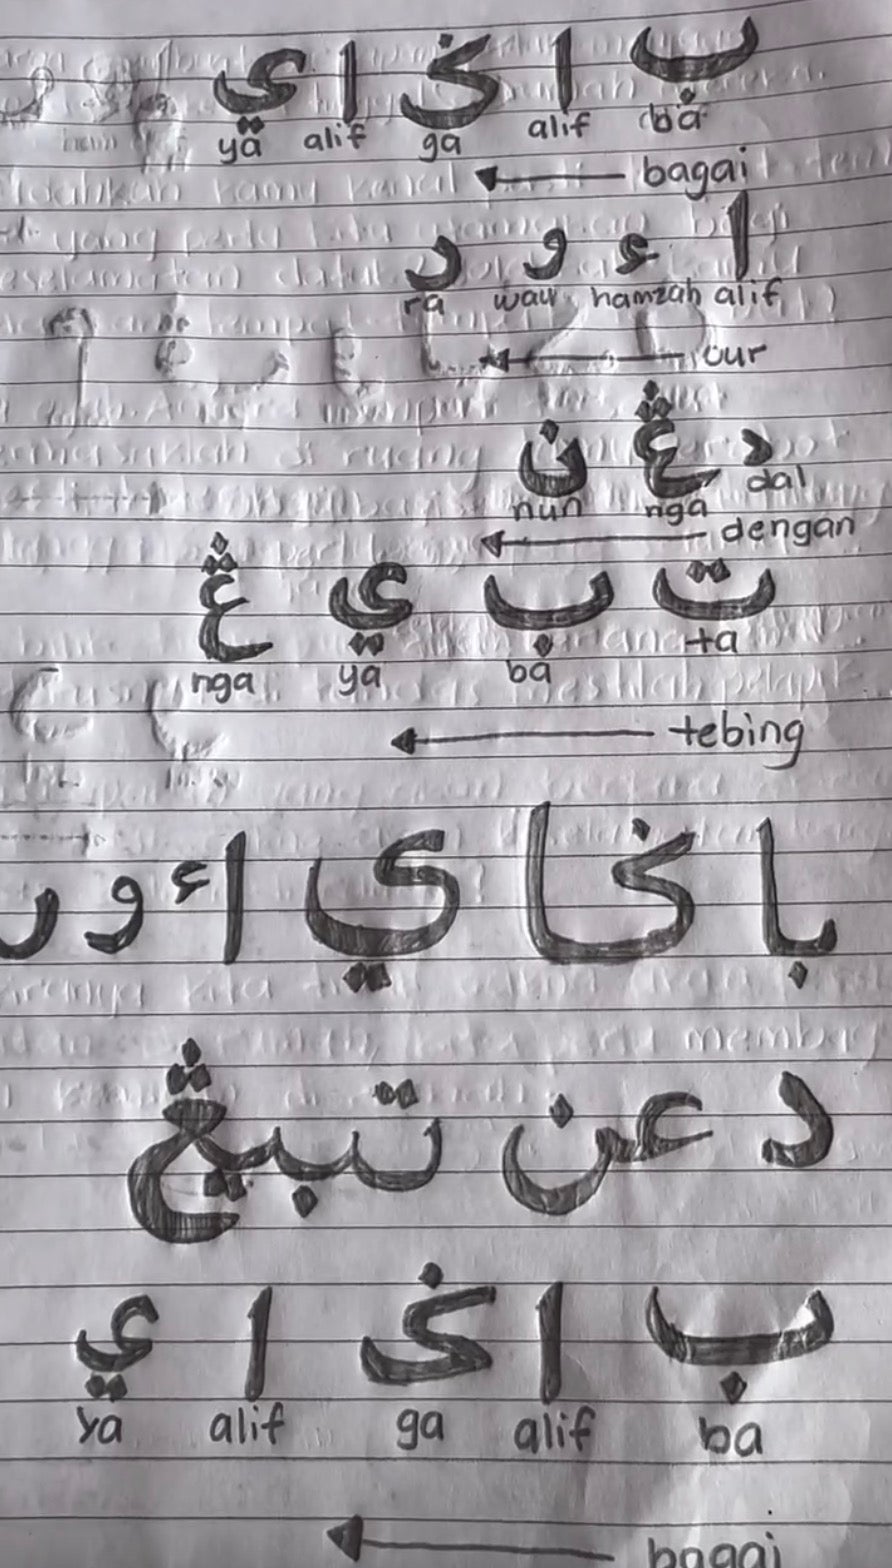 ب ا ݢ ا ي
ya alif ga alif ba
bagai
ا ء و ر
ra wau hamzah alif
aur
د ڠ ن
nun nga dal
dengan
ت ب ي ڠ
nga ya ba ta
tebing
باݢاي اءور
دعن تبيڠ
ب ا ݢ ا ي
ya alif ga alif ba
bagai